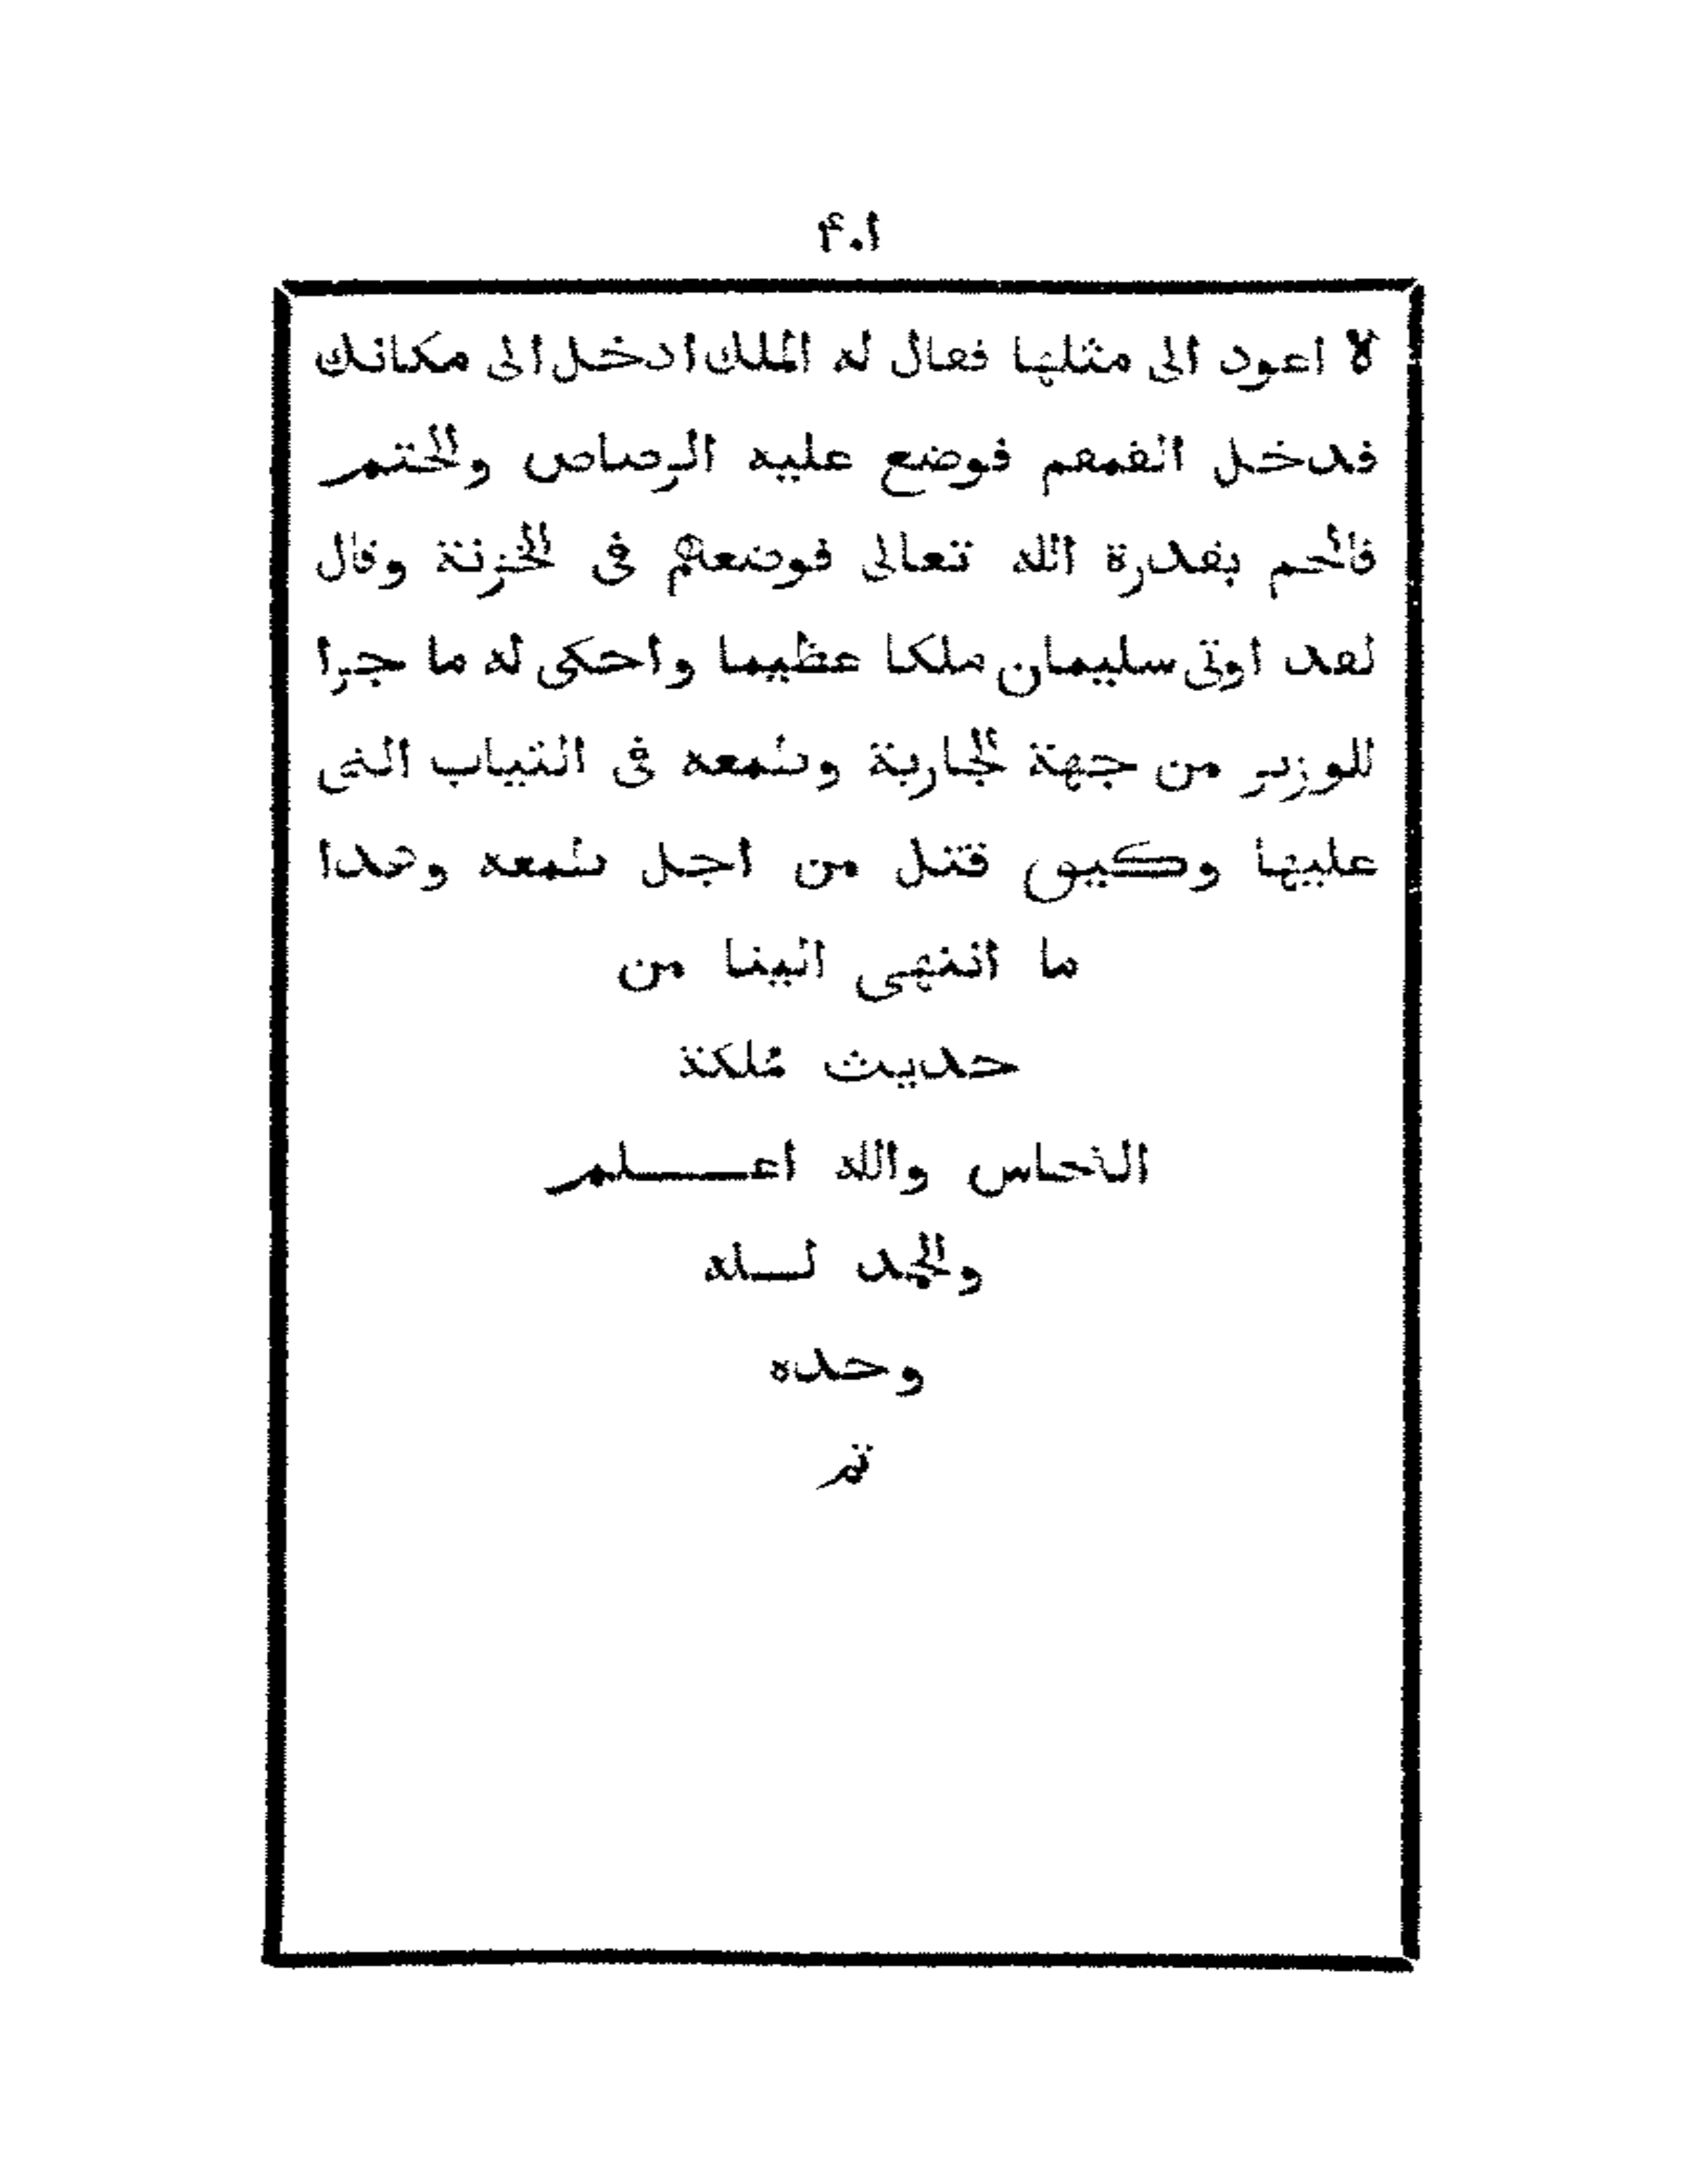 ۴۰۱
لا اعود الى مثلها فقال له الملك ادخل الى مكانك
فدخل القمقم فوضع عليه الرصاص والختم
فالحم بقدرة الله تعالى فوضعهم فى الخزنة وقال
لقد اوتى سليمان ملكا عظيما واحكى له ما جرا
للوزير من جهة الجارية وطمعه فى الثياب التى
عليها وكيف قتل من اجل طمعه وهذا
ما انتهى الينا من
حديث مملكة
النحاس والله اعلم
والحمد لله
وحده
تم